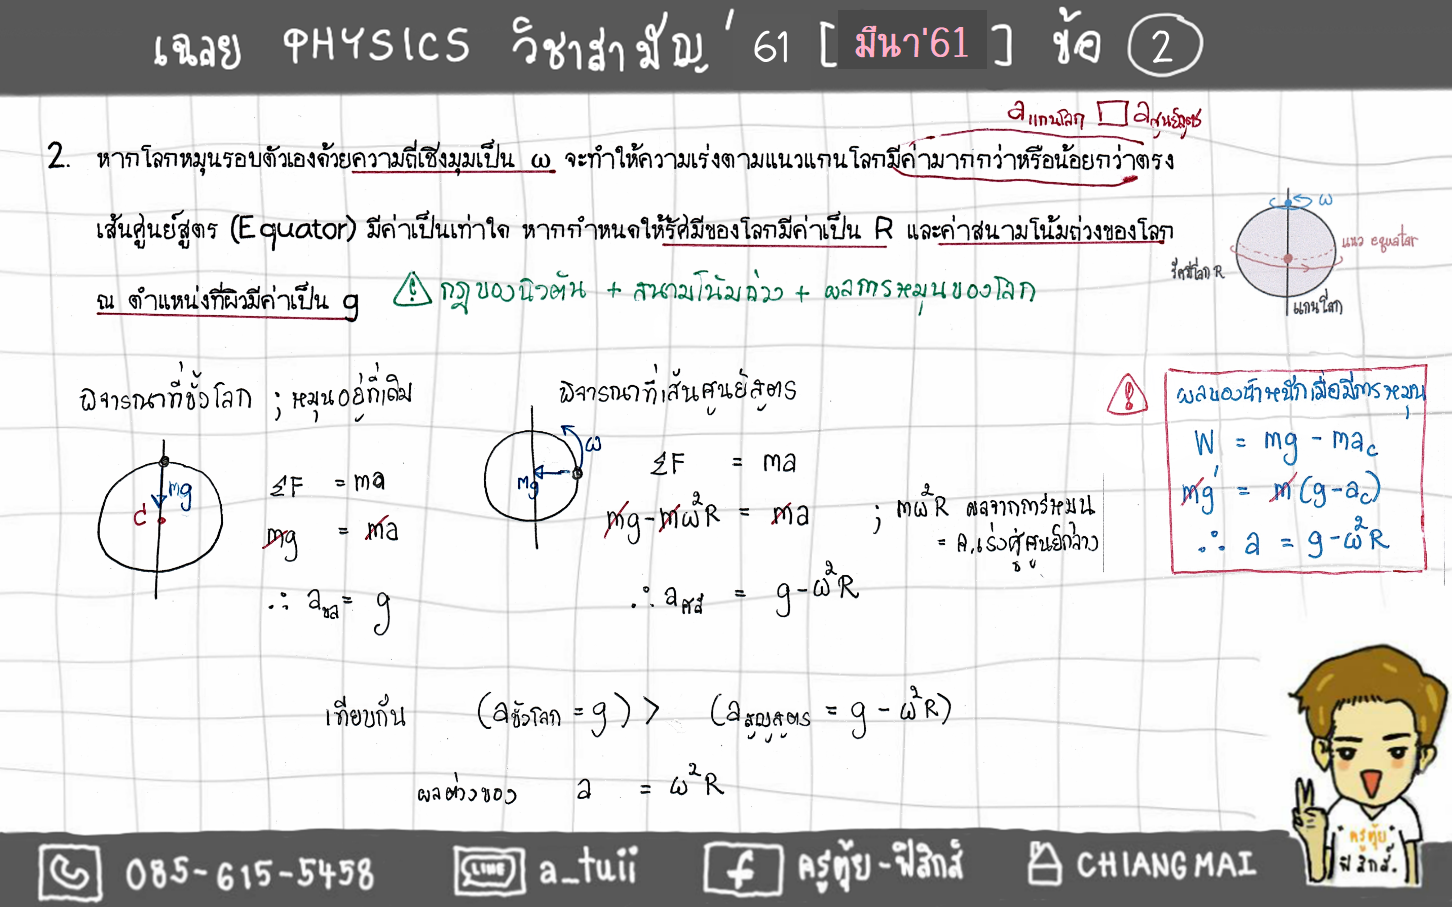 เฉลย PHYSICS วิชาสามัญ' 61 [ มีนา'61 ] ข้อ 2
a แกนโลก □ a ศูนย์สูตร
2. หากโลกหมุนรอบตัวเองด้วยความถี่เชิงมุมเป็น ω จะทำให้ความเร่งตามแนวแกนโลกมีค่ามากกว่าหรือน้อยกว่าตรง
เส้นศูนย์สูตร (Equator) มีค่าเป็นเท่าใด หากกำหนดให้รัศมีของโลกมีค่าเป็น R และค่าสนามโน้มถ่วงของโลก
ณ ตำแหน่งที่ผิวมีค่าเป็น g
! กฎของนิวตัน + สนามโน้มถ่วง + ผลการหมุนของโลก
ω
แนว equatar
รัศมีโลก R
แกนโลก
พิจารณาที่ขั้วโลก ; หมุนอยู่ที่เดิม
mg
c
ΣF = ma
mg = ma
∴ aขล = g
พิจารณาที่เส้นศูนย์สูตร
ω
mg
ΣF = ma
mg - mω²R = ma ; mω²R ผลจากการหมุน
= ค.เร่งสู่ศูนย์กลาง
∴ aศส = g - ω²R
!
ผลของน้ำหนักเมื่อมีการหมุน
W = mg - mac
mg' = m(g - ac)
∴ a = g - ω²R
เทียบกัน (aขั้วโลก = g) > (aศูนย์สูตร = g - ω²R)
ผลต่างของ a = ω²R
ครูตุ้ย
ฟิสิกส์.
085-615-5458 LINE a_tuii f ครูตุ้ย-ฟิสิกส์ CHIANGMAI